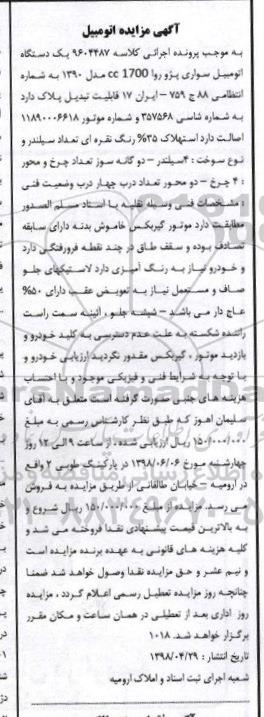 آگهی مزایده اتومبیل
به موجب پرونده اجرائی کلاسه ۹۶۰۴۴۸۷ یک دستگاه
اتومبیل سواری پژو روا 1700 cc مدل ۱۳۹۰ به شماره
انتظامی ۸۸ ج ۷۵۹ – ایران ۱۷ قابلیت تبدیل پلاک دارد
به شماره شاسی ۳۵۷۵۶۸ و شماره موتور ۱۱۸۹۰۰۰۶۶۱۸
اصالت دارد استهلاک ۳۵% رنگ نقره ای تعداد سیلندر و
نوع سوخت : ۴سیلندر – دو گانه سوز تعداد چرخ و محور
: ۴ چرخ – دو محور تعداد درب چهار درب وضعیت فنی
: مشخصات فنی وسیله نقلیه با اسناد مسلم الصدور
مطابقت دارد موتور گیربکس خاموش بدنه دارای سابقه
تصادف بوده و سقف طاق در چند نقطه فرورفتگی دارد
و خودرو نیاز به رنگ آمیزی دارد لاستیکهای جلو
صاف و مستعمل نیاز به تعویض عقب دارای ۵۰%
عاج دار می باشد – شیشه جلو ، آئینه سمت راست
راننده شکسته به علت عدم دسترسی به کلید خودرو و
بازدید موتور ، گیربکس مقدور نگردید ارزیابی خودرو و
با توجه به شرایط فنی و فیزیکی موجود و با احتساب
هزینه های جنبی صورت گرفته است متعلق به آقای
سلیمان اهوز که طبق نظر کارشناس رسمی به مبلغ
۱۵۰/۰۰۰/۰۰۰ ریال ارزیابی شده ، از ساعت ۹ الی ۱۲ روز
چهارشنبه مورخ ۱۳۹۸/۰۶/۰۶ در پارکینگ طوبی ۲ واقع
در ارومیه – خیابان طالقانی از طریق مزایده به فروش
می رسد. مزایده از مبلغ ۱۵۰/۰۰۰/۰۰۰ ریال شروع و
به بالاترین قیمت پیشنهادی نقدا فروخته می شد و
کلیه هزینه های قانونی به عهده برنده مزایده است
و نیم عشر و حق مزایده نقدا وصول خواهد شد ضمنا
چنانچه روز مزایده تعطیل رسمی اعلام گردد ، مزایده
روز اداری بعد از تعطیلی در همان ساعت و مکان مقرر
برگزار خواهد شد. ۱۰۱۸
تاریخ انتشار : ۱۳۹۸/۰۴/۲۹
شعبه اجرای ثبت اسناد و املاک ارومیه